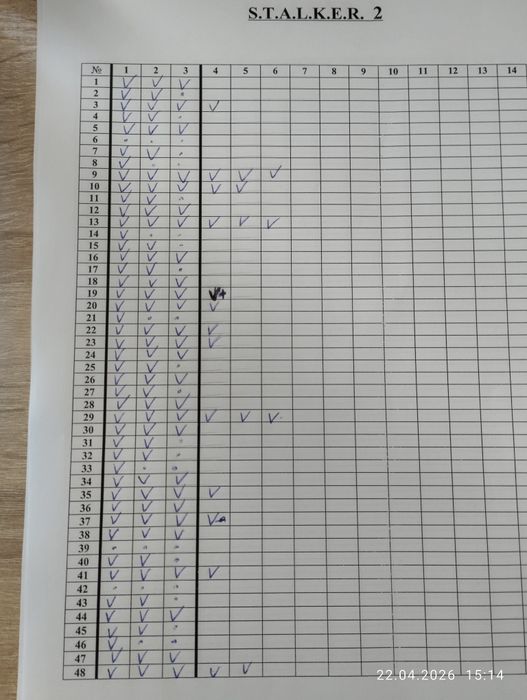 S.T.A.L.K.E.R. 2
№ 1 2 3 4 5 6 7 8 9 10 11 12 13 14
1
2
3
4
5
6
7
8
9
10
11
12
13
14
15
16
17
18
19
20
21
22
23
24
25
26
27
28
29
30
31
32
33
34
35
36
37
38
39
40
41
42
43
44
45
46
47
48
22.04.2026 15:14